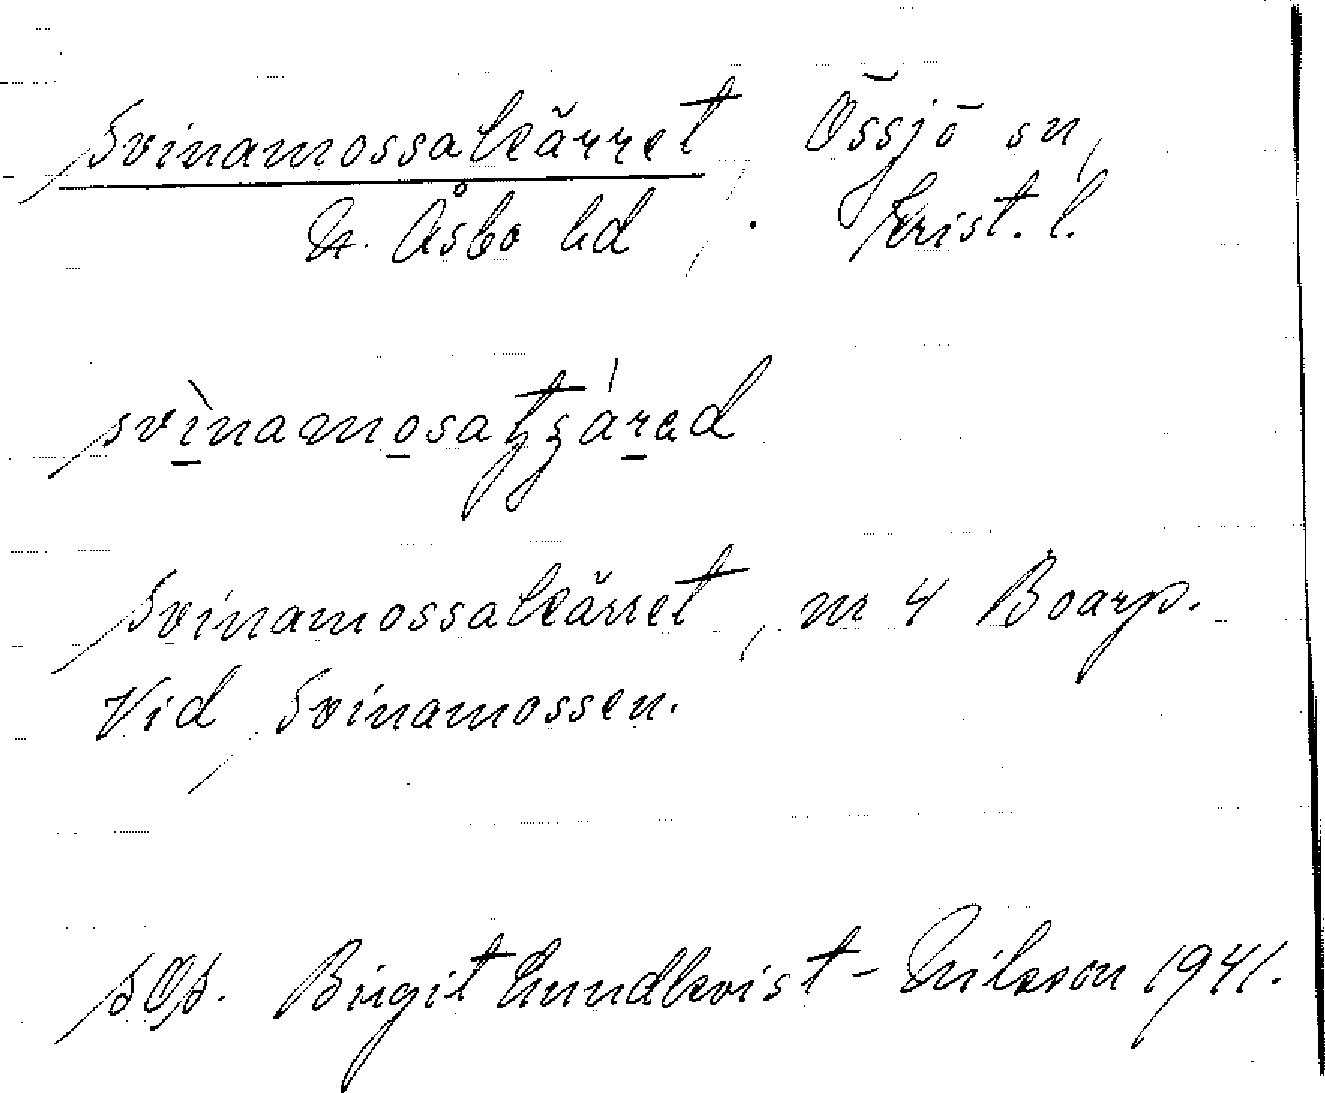 Svinamossakärret, Össjö sn,
N. Åsbo hd, Krist. l.
svìnamosatʒárad
Svinamossakärret, nr 4 Boarp.
Vid Svinamossen.
Birgit Lundkvist-Nilsson 1941.